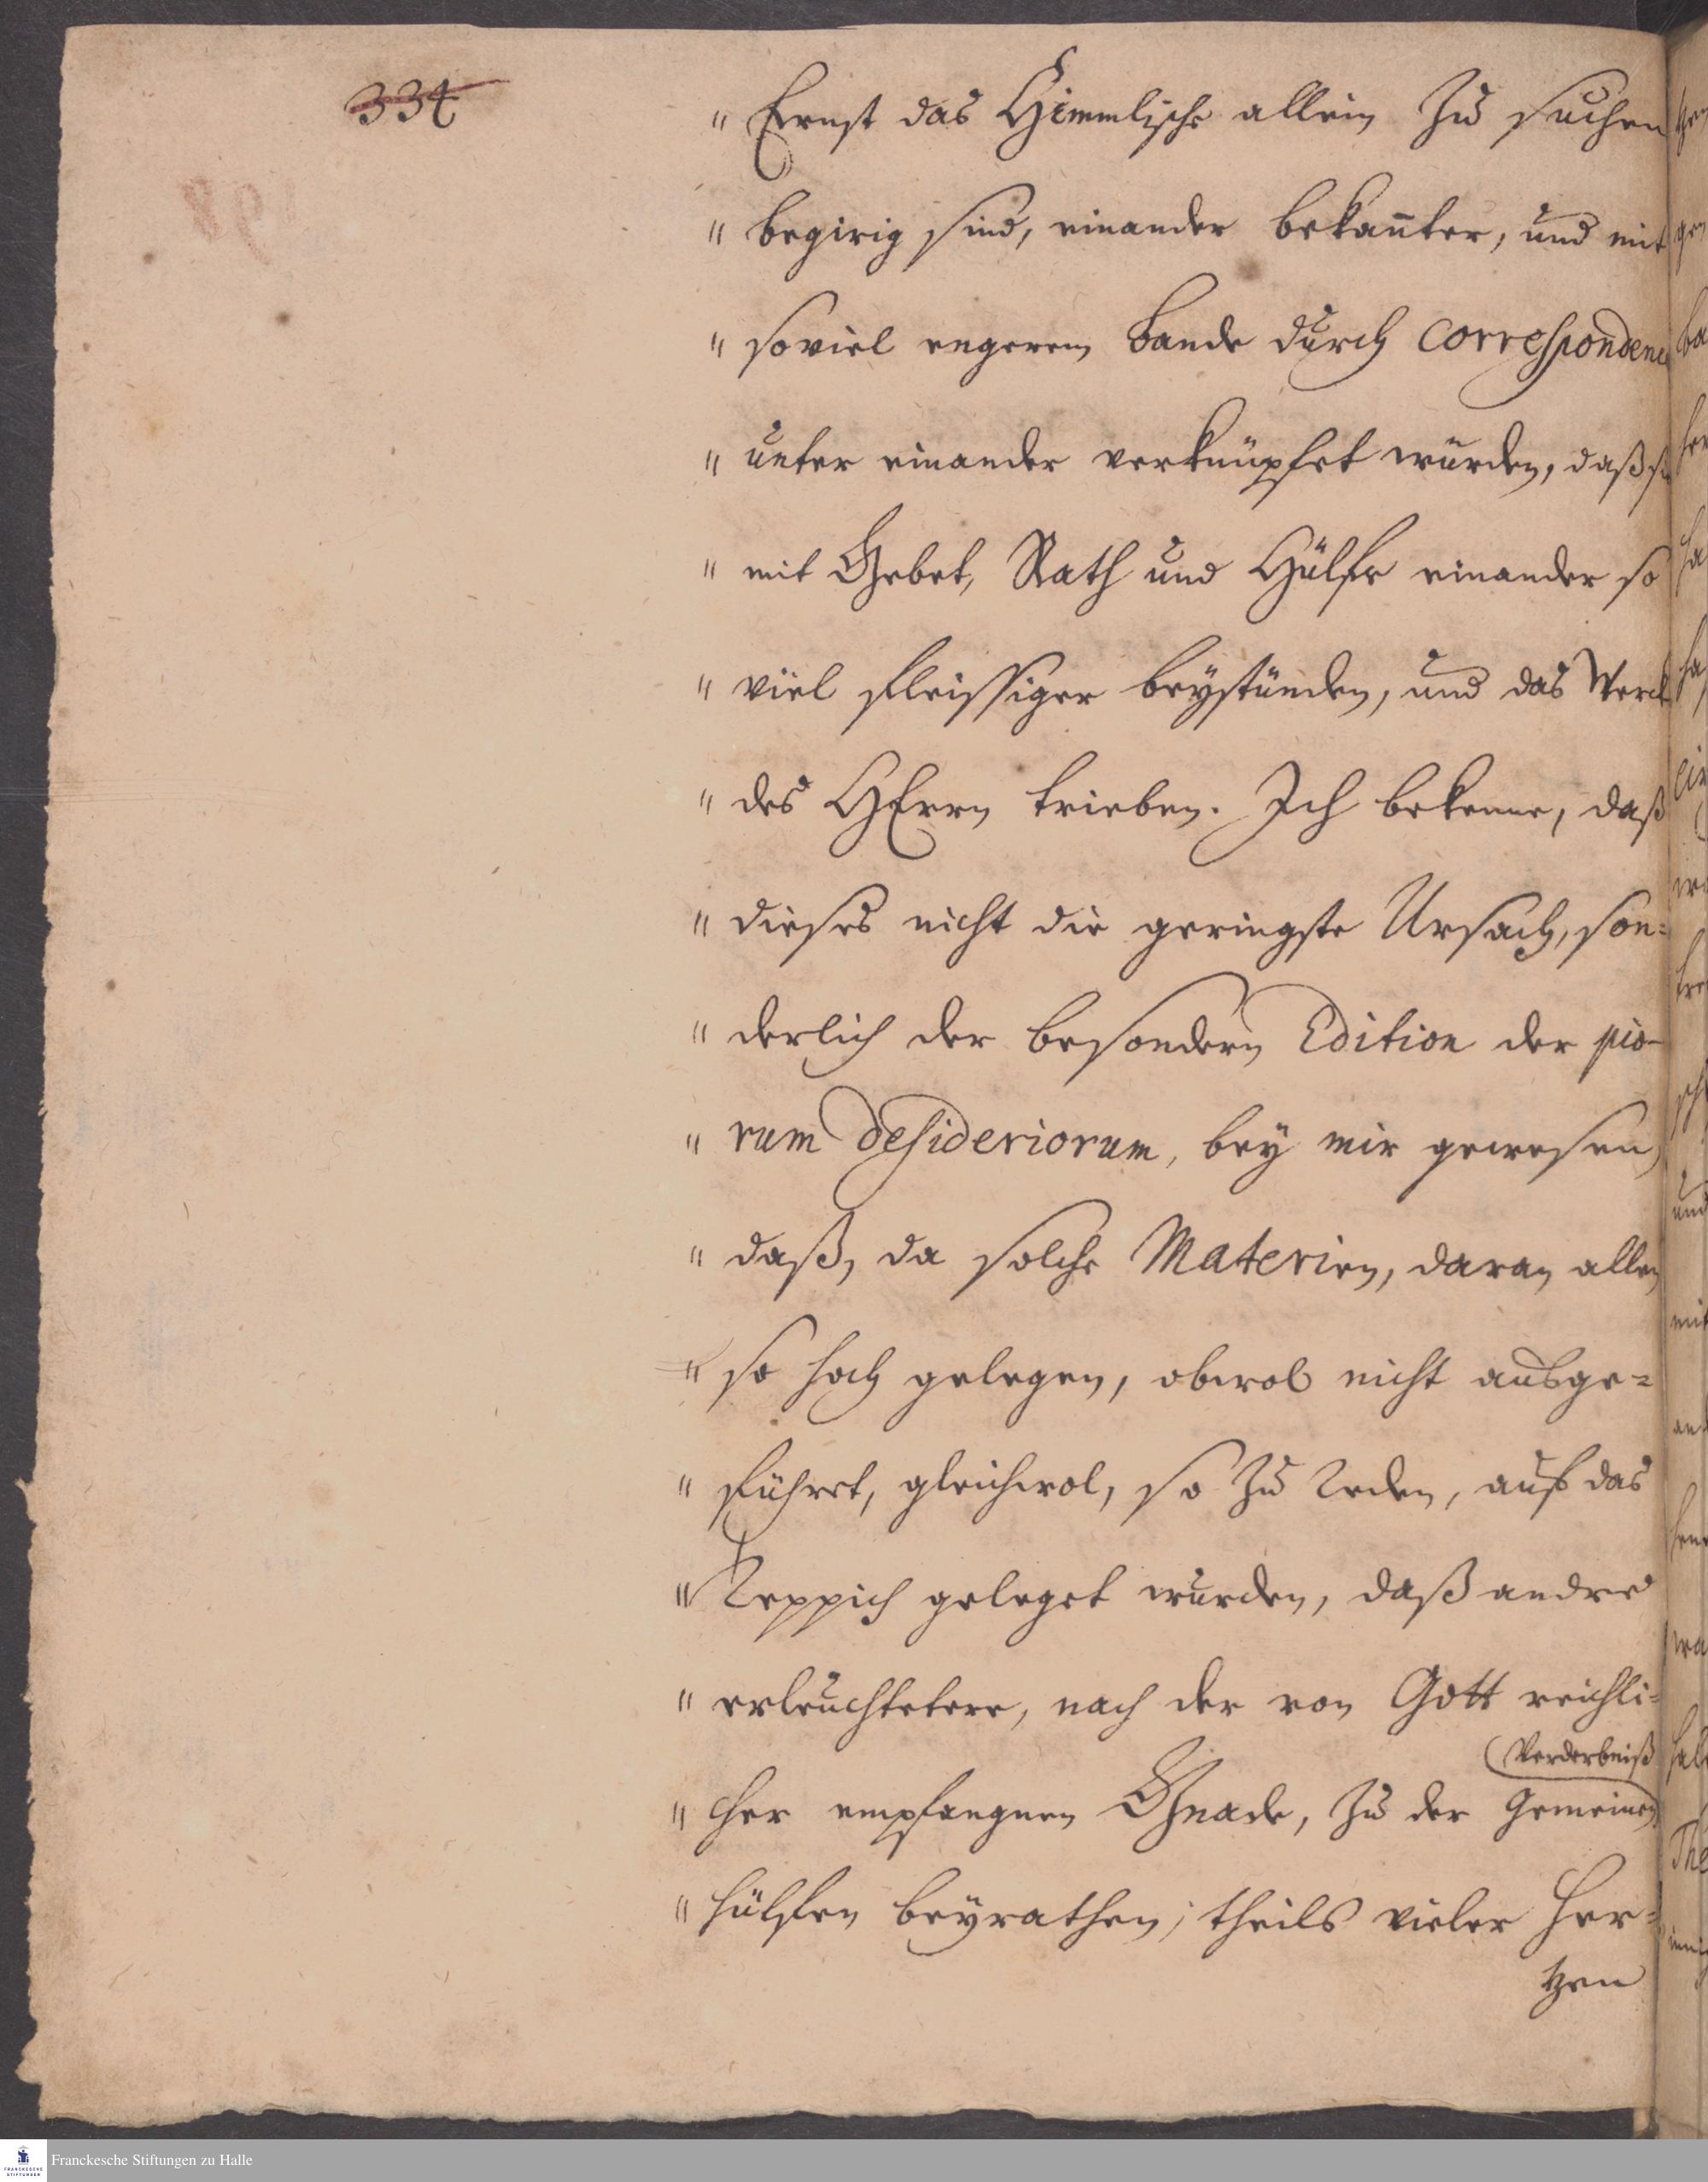 334
" Ernst das Himmlische allein zu suchen
" begirig sind, einander bekan̄ter, und mit
" soviel engerem bande durch correspondenc
" unter einander verknüpfet würden, daß s
" mit Gebet, Rath und Hülfe einander so
" viel fleissiger beystünden, und das Werck
" des HErrn trieben. Ich bekenne, daß
" dieses nicht die geringste Ursach, son=
" derlich der besondern Edition der pio-
" rum desideriorum, bey mir gewesen,
" daß, da solche Materien, daran allen
" so hoch gelegen, obwol nicht ausge=
" führet, gleichwol, so zu reden, auf das
" Teppich geleget wurden, daß andre
" erleuchtetere, nach der von Gott reichli=
(Verderbniß
" cher empfangnen Gnade, zu der Gemeinen
" hülffen beyrathen; theils vieler Her=
tzen
Franckesche Stiftungen zu Halle